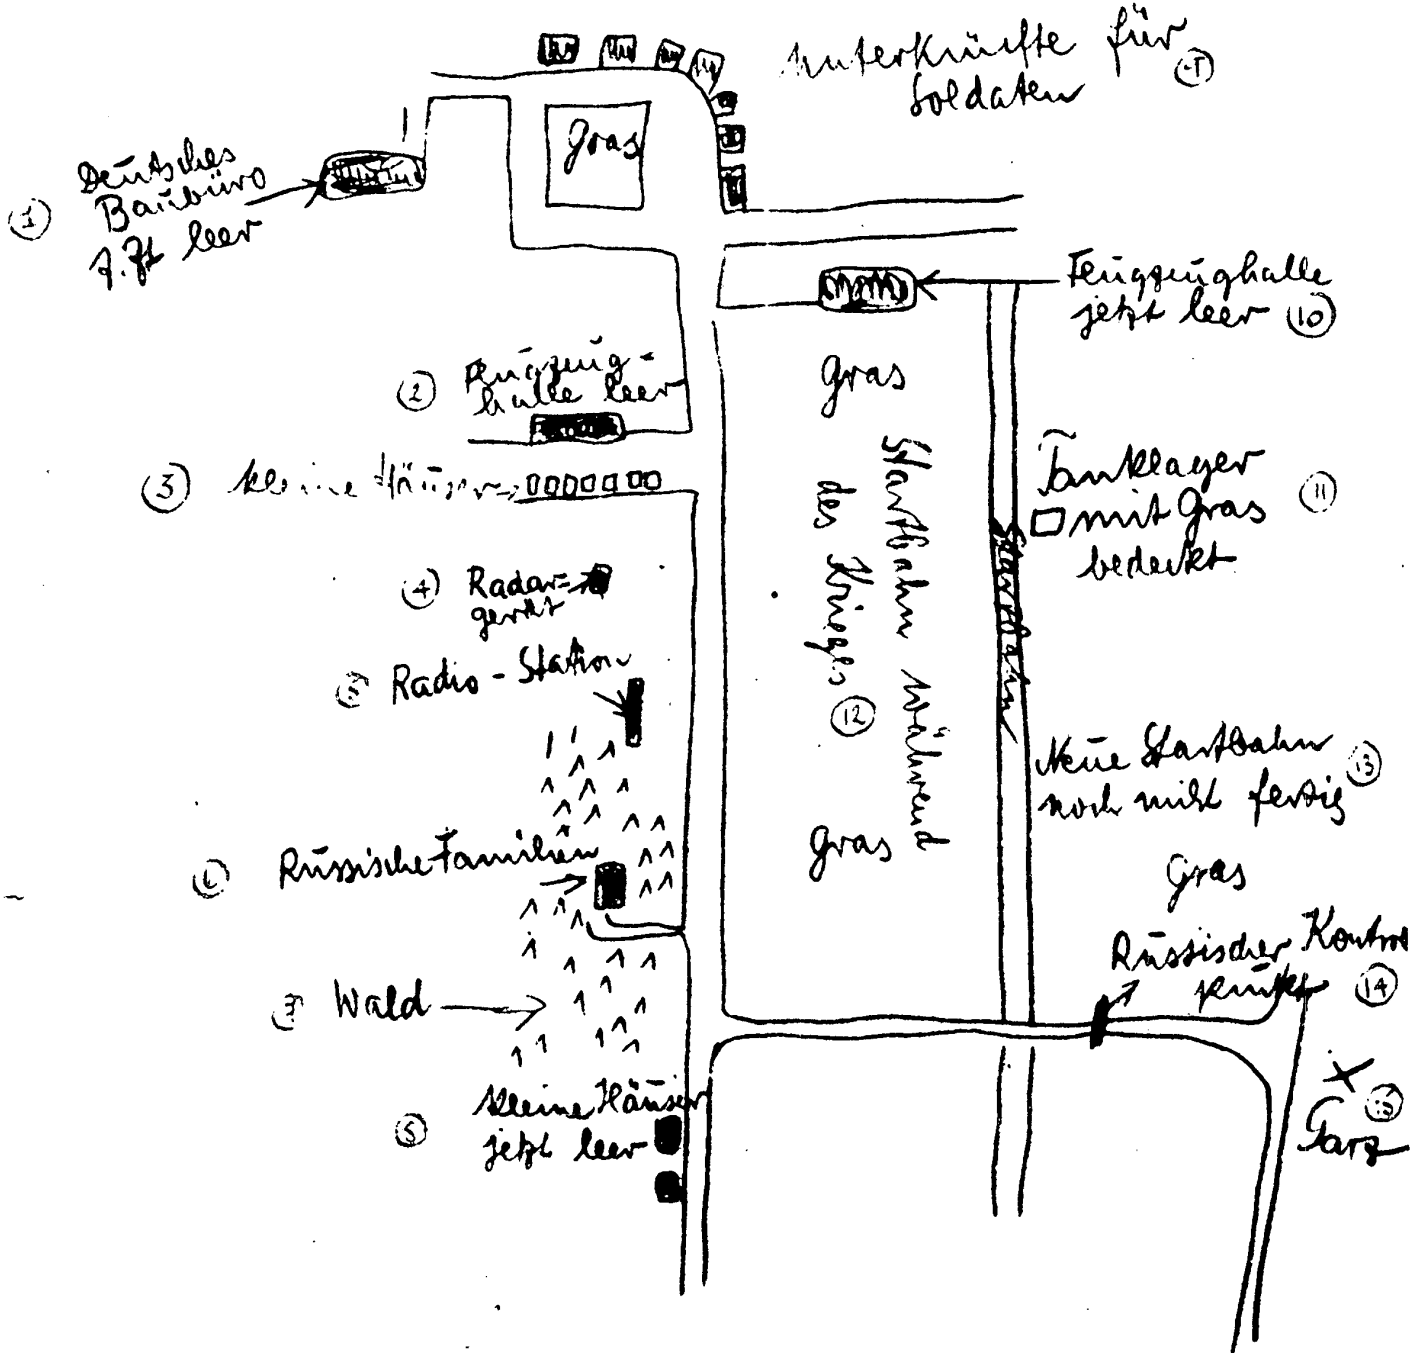 Unterkünfte für
Soldaten
Gras
Deutsches
Baubüro
z. Zt leer
1
Flugzeughalle
jetzt leer 10
2 Flugzeug-
halle leer
Gras
3 kleine Häuser
Tanklager
mit Gras
bedeckt
11
Startbahn während
des Krieges 12
Startbahn
4 Radar-
gerät
5 Radio-Station
Neue Startbahn
noch nicht fertig
13
Gras
6 Russische Familien
Gras
Russischer Kontroll
punkt 14
Wald
kleine Häuser
jetzt leer
Garz
15